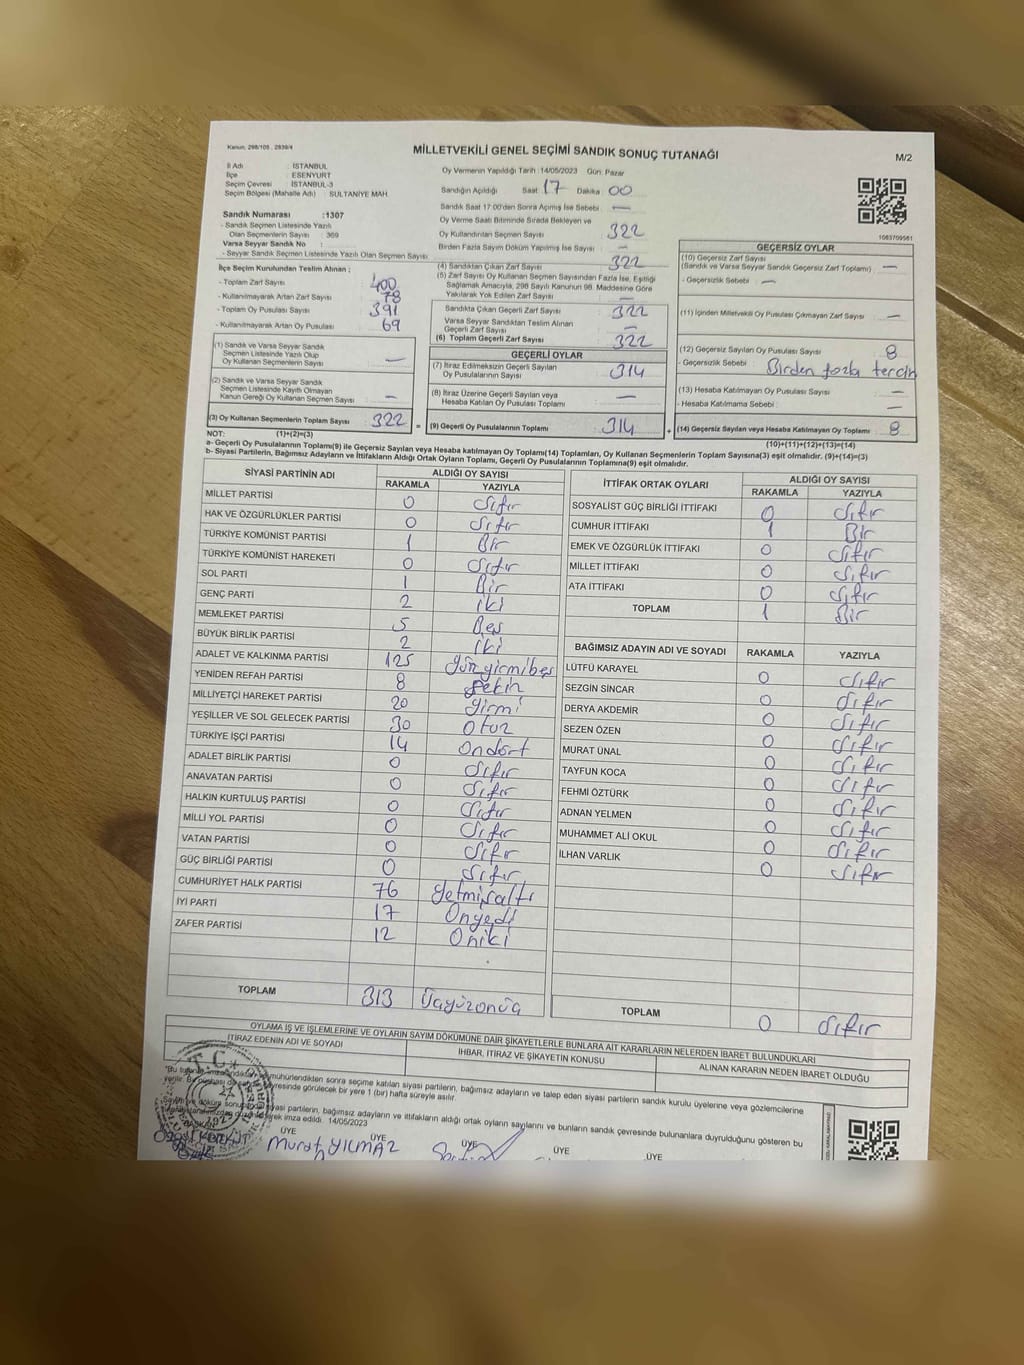 Kanun: 298/105 , 2839/4
MİLLETVEKİLİ GENEL SEÇİMİ SANDIK SONUÇ TUTANAĞI
M/2
İl Adı : İSTANBUL
İlçe : ESENYURT
Seçim Çevresi : İSTANBUL-3
Seçim Bölgesi (Mahalle Adı) : SULTANİYE MAH.
Sandık Numarası :1307
- Sandık Seçmen Listesinde Yazılı
Olan Seçmenlerin Sayısı : 369
Varsa Seyyar Sandık No :
- Seyyar Sandık Seçmen Listesinde Yazılı Olan Seçmen Sayısı:
Oy Vermenin Yapıldığı Tarih :14/05/2023 Gün: Pazar
Sandığın Açıldığı Saat 17 Dakika 00
Sandık Saat 17:00'den Sonra Açılmış İse Sebebi : —
Oy Verme Saati Bitiminde Sırada Bekleyen ve
Oy Kullandırılan Seçmen Sayısı : 322
Birden Fazla Sayım Döküm Yapılmış İse Sayısı : —
1063709561
İlçe Seçim Kurulundan Teslim Alınan ;
- Toplam Zarf Sayısı : 400
- Kullanılmayarak Artan Zarf Sayısı : 78
- Toplam Oy Pusulası Sayısı : 391
- Kullanılmayarak Artan Oy Pusulası : 69
(1) Sandık ve Varsa Seyyar Sandık
Seçmen Listesinde Yazılı Olup
Oy Kullanan Seçmenlerin Sayısı : —
(2) Sandık ve Varsa Seyyar Sandık
Seçmen Listesinde Kayıtlı Olmayan
Kanun Gereği Oy Kullanan Seçmen Sayısı : —
(3) Oy Kullanan Seçmenlerin Toplam Sayısı : 322
(1)+(2)=(3)
(4) Sandıktan Çıkan Zarf Sayısı : 322
(5) Zarf Sayısı Oy Kullanan Seçmen Sayısından Fazla İse, Eşitliği
Sağlamak Amacıyla, 298 Sayılı Kanunun 98. Maddesine Göre
Yakılarak Yok Edilen Zarf Sayısı : —
Sandıkta Çıkan Geçerli Zarf Sayısı : 322
Varsa Seyyar Sandıktan Teslim Alınan
Geçerli Zarf Sayısı : —
(6) Toplam Geçerli Zarf Sayısı : 322
GEÇERLİ OYLAR
(7) İtiraz Edilmeksizin Geçerli Sayılan
Oy Pusulalarının Sayısı : 314
(8) İtiraz Üzerine Geçerli Sayılan veya
Hesaba Katılan Oy Pusulaları Toplamı : —
= (9) Geçerli Oy Pusulalarının Toplamı : 314 +
GEÇERSİZ OYLAR
(10) Geçersiz Zarf Sayısı
(Sandık ve Varsa Seyyar Sandık Geçersiz Zarf Toplamı) : —
- Geçersizlik Sebebi : —
(11) İçinden Milletvekili Oy Pusulası Çıkmayan Zarf Sayısı : —
(12) Geçersiz Sayılan Oy Pusulası Sayısı : 8
- Geçersizlik Sebebi : Birden fazla tercih
(13) Hesaba Katılmayan Oy Pusulası Sayısı : —
- Hesaba Katılmama Sebebi : —
(14) Geçersiz Sayılan veya Hesaba Katılmayan Oy Toplamı : 8
(10)+(11)+(12)+(13)=(14)
NOT:
a- Geçerli Oy Pusulasının Toplamı(9) ile Geçersiz Sayılan veya Hesaba katılmayan Oy Toplamı(14) Toplamları, Oy Kullanan Seçmenlerin Toplam Sayısına(3) eşit olmalıdır. (9)+(14)=(3)
b- Siyasi Partilerin, Bağımsız Adayların ve İttifakların Aldığı Ortak Oyların Toplamı, Geçerli Oy Pusulalarının Toplamına(9) eşit olmalıdır.
SİYASİ PARTİNİN ADI ALDIĞI OY SAYISI
RAKAMLA YAZIYLA
MİLLET PARTİSİ 0 Sıfır
HAK VE ÖZGÜRLÜKLER PARTİSİ 0 Sıfır
TÜRKİYE KOMÜNİST PARTİSİ 1 Bir
TÜRKİYE KOMÜNİST HAREKETİ 0 Sıfır
SOL PARTİ 1 Bir
GENÇ PARTİ 2 iki
MEMLEKET PARTİSİ 5 Beş
BÜYÜK BİRLİK PARTİSİ 2 iki
ADALET VE KALKINMA PARTİSİ 125 yüzyirmibeş
YENİDEN REFAH PARTİSİ 8 Sekiz
MİLLİYETÇİ HAREKET PARTİSİ 20 yirmi
YEŞİLLER VE SOL GELECEK PARTİSİ 30 Otuz
TÜRKİYE İŞÇİ PARTİSİ 14 Ondört
ADALET BİRLİK PARTİSİ 0 Sıfır
ANAVATAN PARTİSİ 0 Sıfır
HALKIN KURTULUŞ PARTİSİ 0 Sıfır
MİLLİ YOL PARTİSİ 0 Sıfır
VATAN PARTİSİ 0 Sıfır
GÜÇ BİRLİĞİ PARTİSİ 0 Sıfır
CUMHURİYET HALK PARTİSİ 76 Yetmişaltı
İYİ PARTİ 17 Onyedi
ZAFER PARTİSİ 12 Oniki
TOPLAM 313 Üçyüzonüç
İTTİFAK ORTAK OYLARI ALDIĞI OY SAYISI
RAKAMLA YAZIYLA
SOSYALİST GÜÇ BİRLİĞİ İTTİFAKI 0 Sıfır
CUMHUR İTTİFAKI 1 Bir
EMEK VE ÖZGÜRLÜK İTTİFAKI 0 Sıfır
MİLLET İTTİFAKI 0 Sıfır
ATA İTTİFAKI 0 Sıfır
TOPLAM 1 Bir
BAĞIMSIZ ADAYIN ADI VE SOYADI RAKAMLA YAZIYLA
LÜTFÜ KARAYEL 0 Sıfır
SEZGİN SİNCAR 0 Sıfır
DERYA AKDEMİR 0 Sıfır
SEZEN ÖZEN 0 Sıfır
MURAT ÜNAL 0 Sıfır
TAYFUN KOCA 0 Sıfır
FEHMİ ÖZTÜRK 0 Sıfır
ADNAN YELMEN 0 Sıfır
MUHAMMET ALİ OKUL 0 Sıfır
İLHAN VARLIK 0 Sıfır
TOPLAM 0 Sıfır
OYLAMA İŞ VE İŞLEMLERİNE VE OYLARIN SAYIM DÖKÜMÜNE DAİR ŞİKAYETLERLE BUNLARA AİT KARARLARIN NELERDEN İBARET BULUNDUKLARI
İTİRAZ EDENİN ADI VE SOYADI İHBAR, İTİRAZ VE ŞİKAYETİN KONUSU ALINAN KARARIN NEDEN İBARET OLDUĞU
mühürlendikten sonra seçime katılan siyasi partilerin, bağımsız adayların ve talep eden siyasi partilerin sandık kurulu üyelerine veya gözlemcilerine
çevresinde görülecek bir yere 1 (bir) hafta süreyle asılır.
siyasi partilerin, bağımsız adayların ve ittifakların aldığı ortak oyların sayılarını ve bunların sandık çevresinde bulunanlara duyrulduğunu gösteren bu
imza edildi. 14/05/2023
T.C.
ÜYE ÜYE ÜYE ÜYE ÜYE
Murat YILMAZ